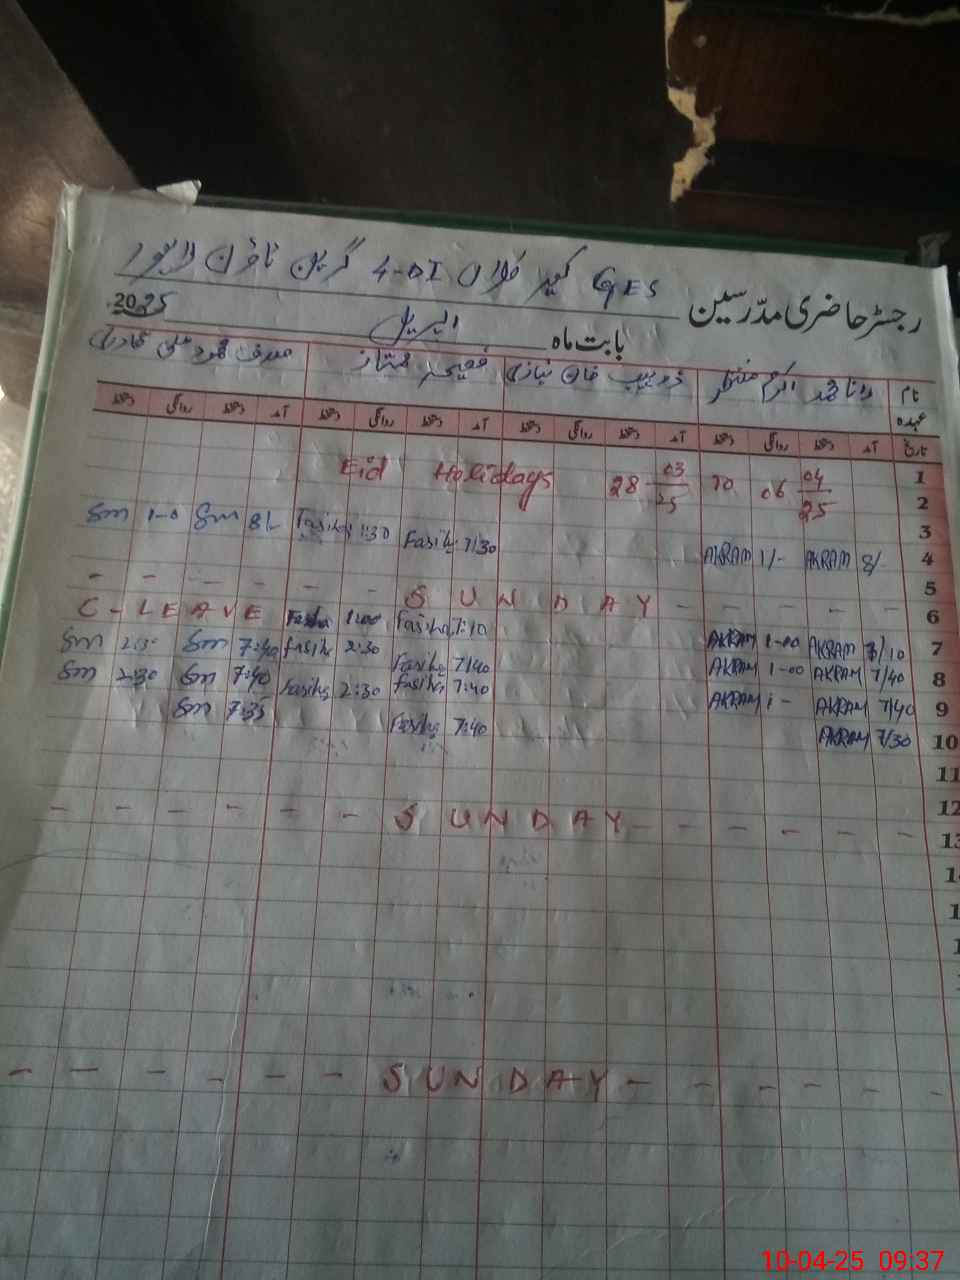 رجسٹر حاضری مدرّسین GES کمپری فاؤنڈیشن 4-D1 گرین ٹاؤن لاہور
بابت ماہ اپریل 2025
نام رانا محمد اکرم منتظر ذوہیب خان نیازی فصیحہ ممتاز صدف محمود علی قادری
عہدہ
تاریخ آمد دستخط روانگی دستخط آمد دستخط روانگی دستخط آمد دستخط روانگی دستخط آمد دستخط روانگی دستخط
1 Eid Holidays 28 03/25 TO 06 04/25
2
3
4 Sm 1-0 Sm 8/- Fasiha 1:30 Fasiha 7/30 AKRAM 1/- AKRAM 8/-
5
6 - - - - - - S U N D A Y - - - - -
7 C-LEAVE Fasiha 1:00 Fasiha 7:10 AKRAM 1-00 AKRAM 8/10
8 Sm 2:30 Sm 7:40 Fasiha 2:30 Fasiha 7/40 AKRAM 1-00 AKRAM 7/40
9 Sm 2:30 Sm 7:40 Fasiha 2:30 Fasiha 7:40 AKRAM 1- AKRAM 7/40
10 Sm 7:35 Fasiha 7:40 AKRAM 7/30
11
12
13 - - - - - - S U N D A Y - - - - - -
- - - - - - S U N D A Y - - - - -
10-04-25 09:37